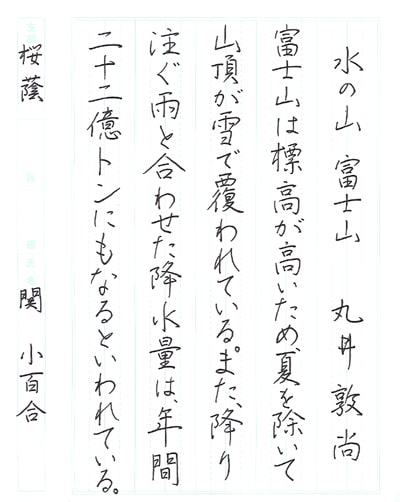 水の山 富士山 丸井敦尚
富士山は標高が高いため夏を除いて
山頂が雪で覆われている。また、降り
注ぐ雨と合わせた降水量は、年間
二十二億トンにもなるといわれている。
桜蔭 関 小百合